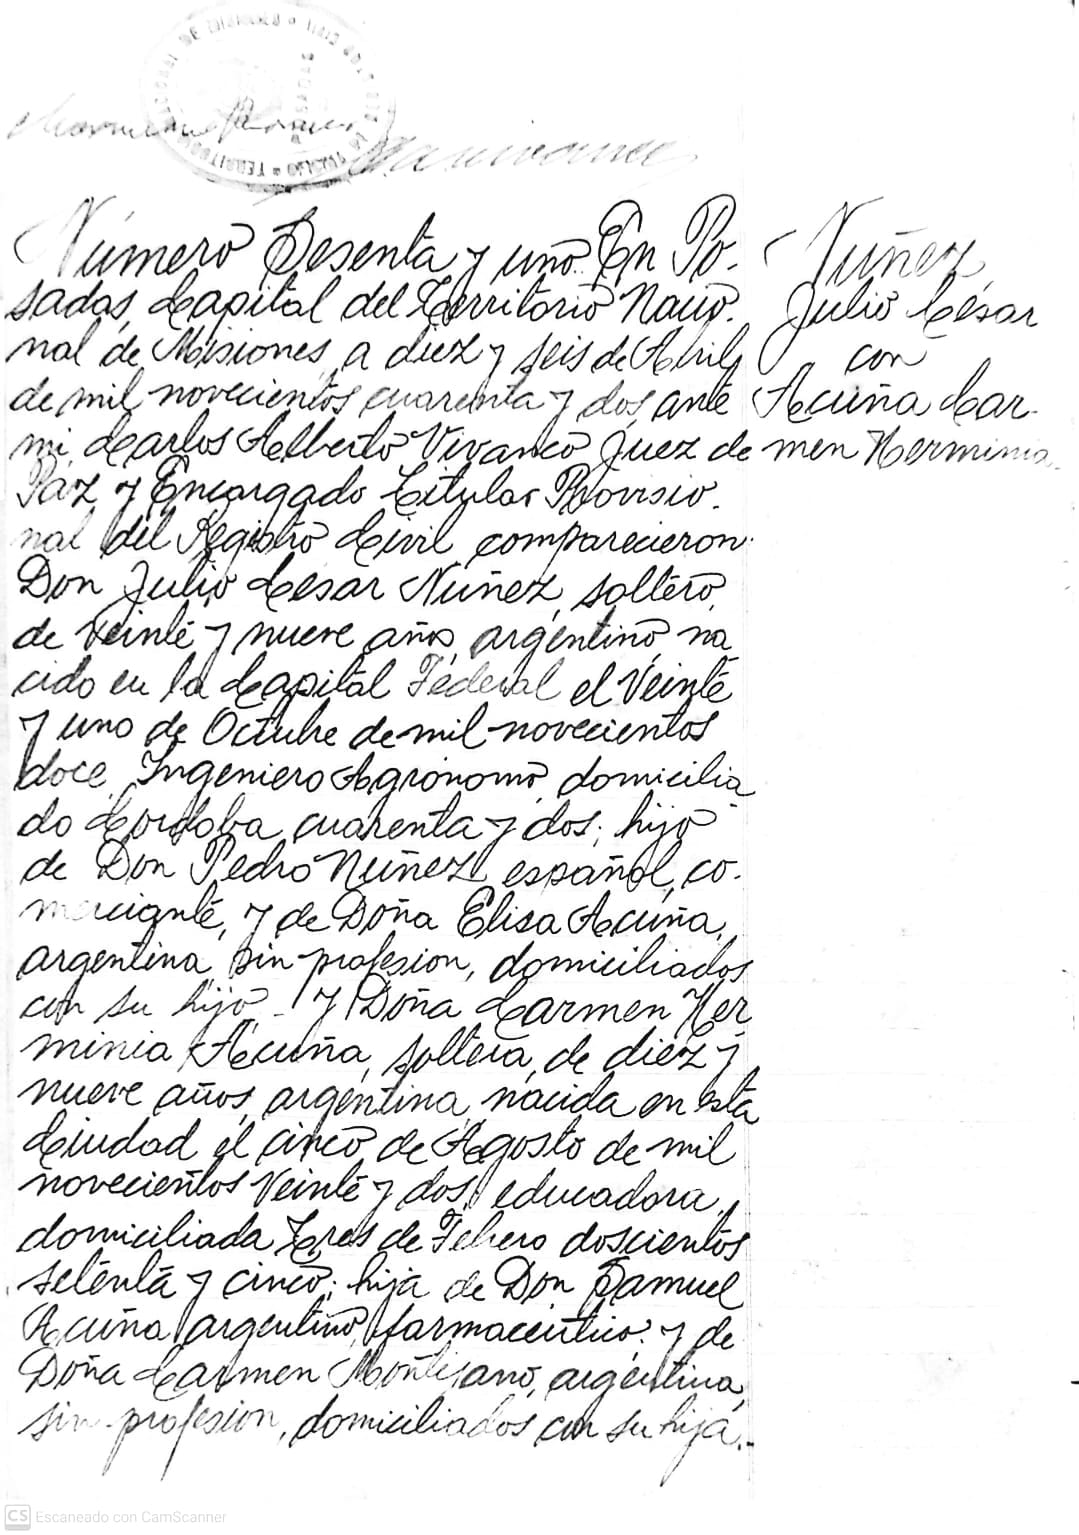 Número Sesenta y uno. En Po-
sadas, Capital del Territorio Nacio-
nal de Misiones, a diez y seis de Abril
de mil novecientos cuarenta y dos, ante
mi Carlos Alberto Vivanco Juez de
Paz y Encargado Titular Provisio-
nal del Registro Civil comparecieron:
Don Julio César Núñez, soltero,
de veinte y nueve años, argentino, na
cido en la Capital Federal el Veinte
y uno de Octubre de mil novecientos
doce, Ingeniero Agrónomo, domicilia
do Cordoba cuarenta y dos; hijo
de Don Pedro Núñez, español, co-
merciante, y de Doña Elisa Acuña,
argentina, sin profesion, domiciliados
con su hijo. Y Doña Carmen Her
minia Acuña, soltera, de diez y
nueve años, argentina, nacida en esta
Ciudad el cinco de Agosto de mil
novecientos Veinte y dos, educadora,
domiciliada Tres de Febrero doscientos
setenta y cinco; hija de Don Samuel
Acuña argentino, farmaceutico; y de
Doña Carmen Montejano, argentina,
sin profesion, domiciliados con su hija.-
Núñez
Julio César
con
Acuña Car-
men Herminia
CS Escaneado con CamScanner